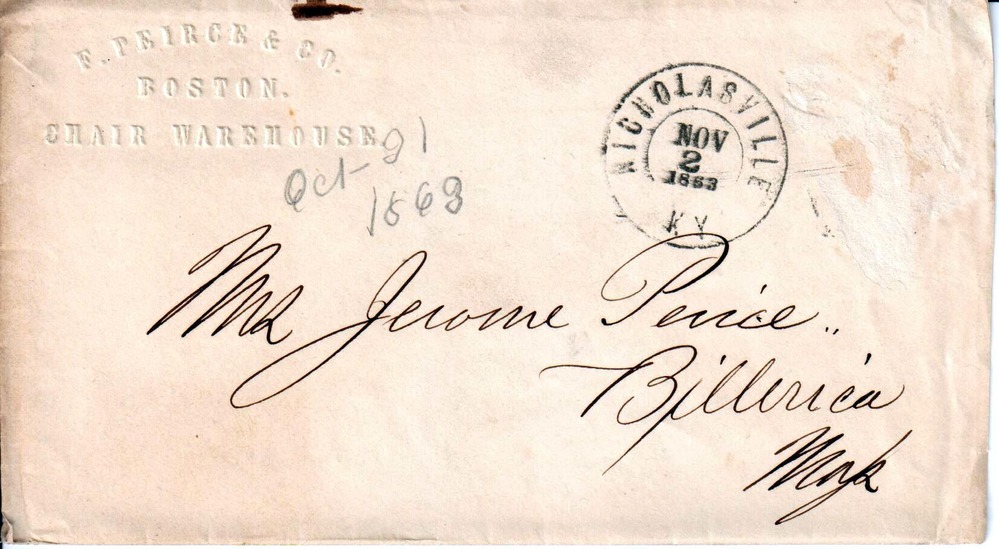 F. PEIRCE & CO.
BOSTON.
CHAIR WAREHOUSE
Oct 21
1863
NICHOLASVILLE
NOV
2
1863
KY
Mrs Jerome Peirce
Billerica
Mass